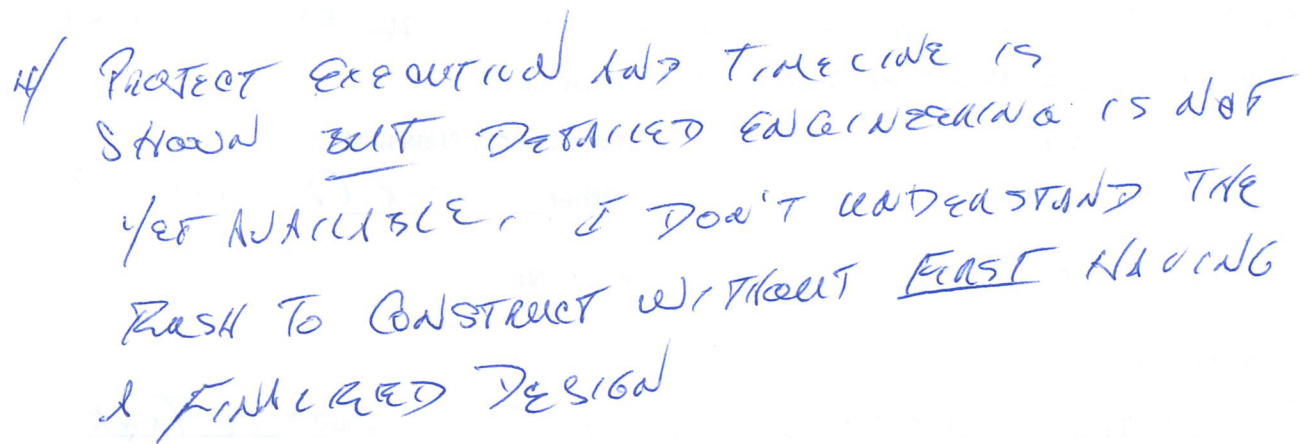 4/ PROJECT EXECUTION AND TIMELINE IS
SHOWN BUT DETAILED ENGINEERING IS NOT
YET AVAILABLE. I DON'T UNDERSTAND THE
RUSH TO CONSTRUCT WITHOUT FIRST HAVING
A FINALIZED DESIGN